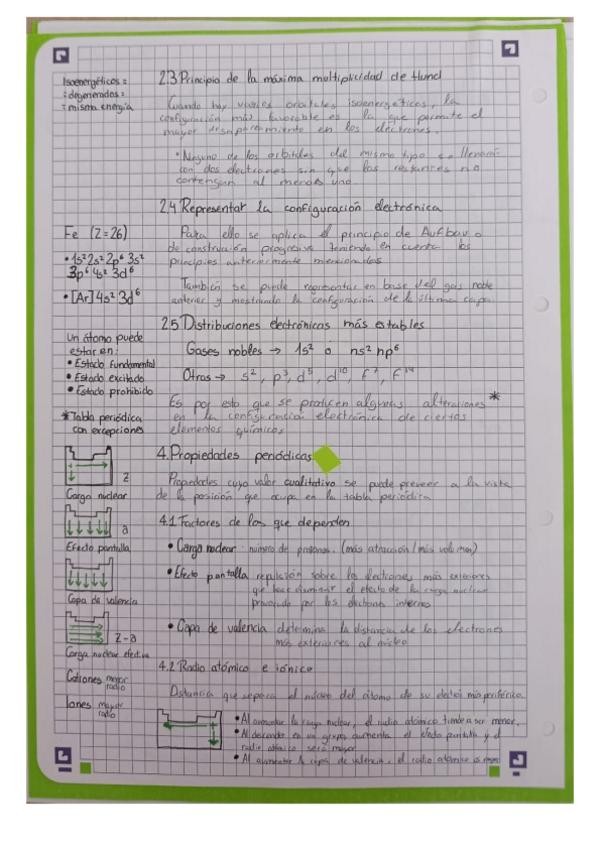 Isoenergéticos =
= degenerados =
= misma energía
2.3 Principio de la máxima multiplicidad de Hund
Cuando hay varios orbitales isoenergéticos, la
configuración más favorable es la que permite el
mayor desapareamiento en los electrones.
• Ninguno de los orbitales del mismo tipo se llenará
con dos electrones sin que los restantes no
contengan al menos uno.
2.4 Representar la configuración electrónica
Fe (Z=26)
• 1s² 2s² 2p⁶ 3s²
3p⁶ 4s² 3d⁶
• [Ar] 4s² 3d⁶
Para ello se aplica el principio de Aufbau o
de construcción progresiva teniendo en cuenta los
principios anteriormente mencionados
También se puede representar en base del gas noble
anterior y mostrando la configuración de la última capa.
2.5 Distribuciones electrónicas más estables
Un átomo puede
estar en:
• Estado fundamental
• Estado excitado
• Estado prohibido
Gases nobles → 1s² ó ns² np⁶
Otros → s², p³, d⁵, d¹⁰, f⁷, f¹⁴
*Tabla periódica
con excepciones
Es por esto que se producen algunas alteraciones *
en la configuración electrónica de ciertos
elementos químicos
4. Propiedades periódicas
Z
Carga nuclear
Propiedades cuyo valor cualitativo se puede preveer a la vista
de la posición que ocupa en la tabla periódica
4.1 Factores de los que dependen
a
Efecto pantalla
• Carga nuclear número de protones. (más atracción / más volumen)
• Efecto pantalla repulsión sobre los electrones más exteriores
que hace disminuir el efecto de la carga nuclear
provocado por los electrones internos
Capa de valencia
• Capa de valencia determina la distancia de los electrones
más exteriores al núcleo
Z-a
Carga nuclear efectiva
4.2 Radio atómico e iónico
Cationes mayor
radio
Iones mayor
radio
Distancia que separa el núcleo del átomo de su electrón más periférico.
• Al aumentar la carga nuclear, el radio atómico tiende a ser menor.
• Al descender en un grupo, aumenta el efecto pantalla y el
radio atómico será mayor
• Al aumentar la capa de valencia, el radio atómico es mayor